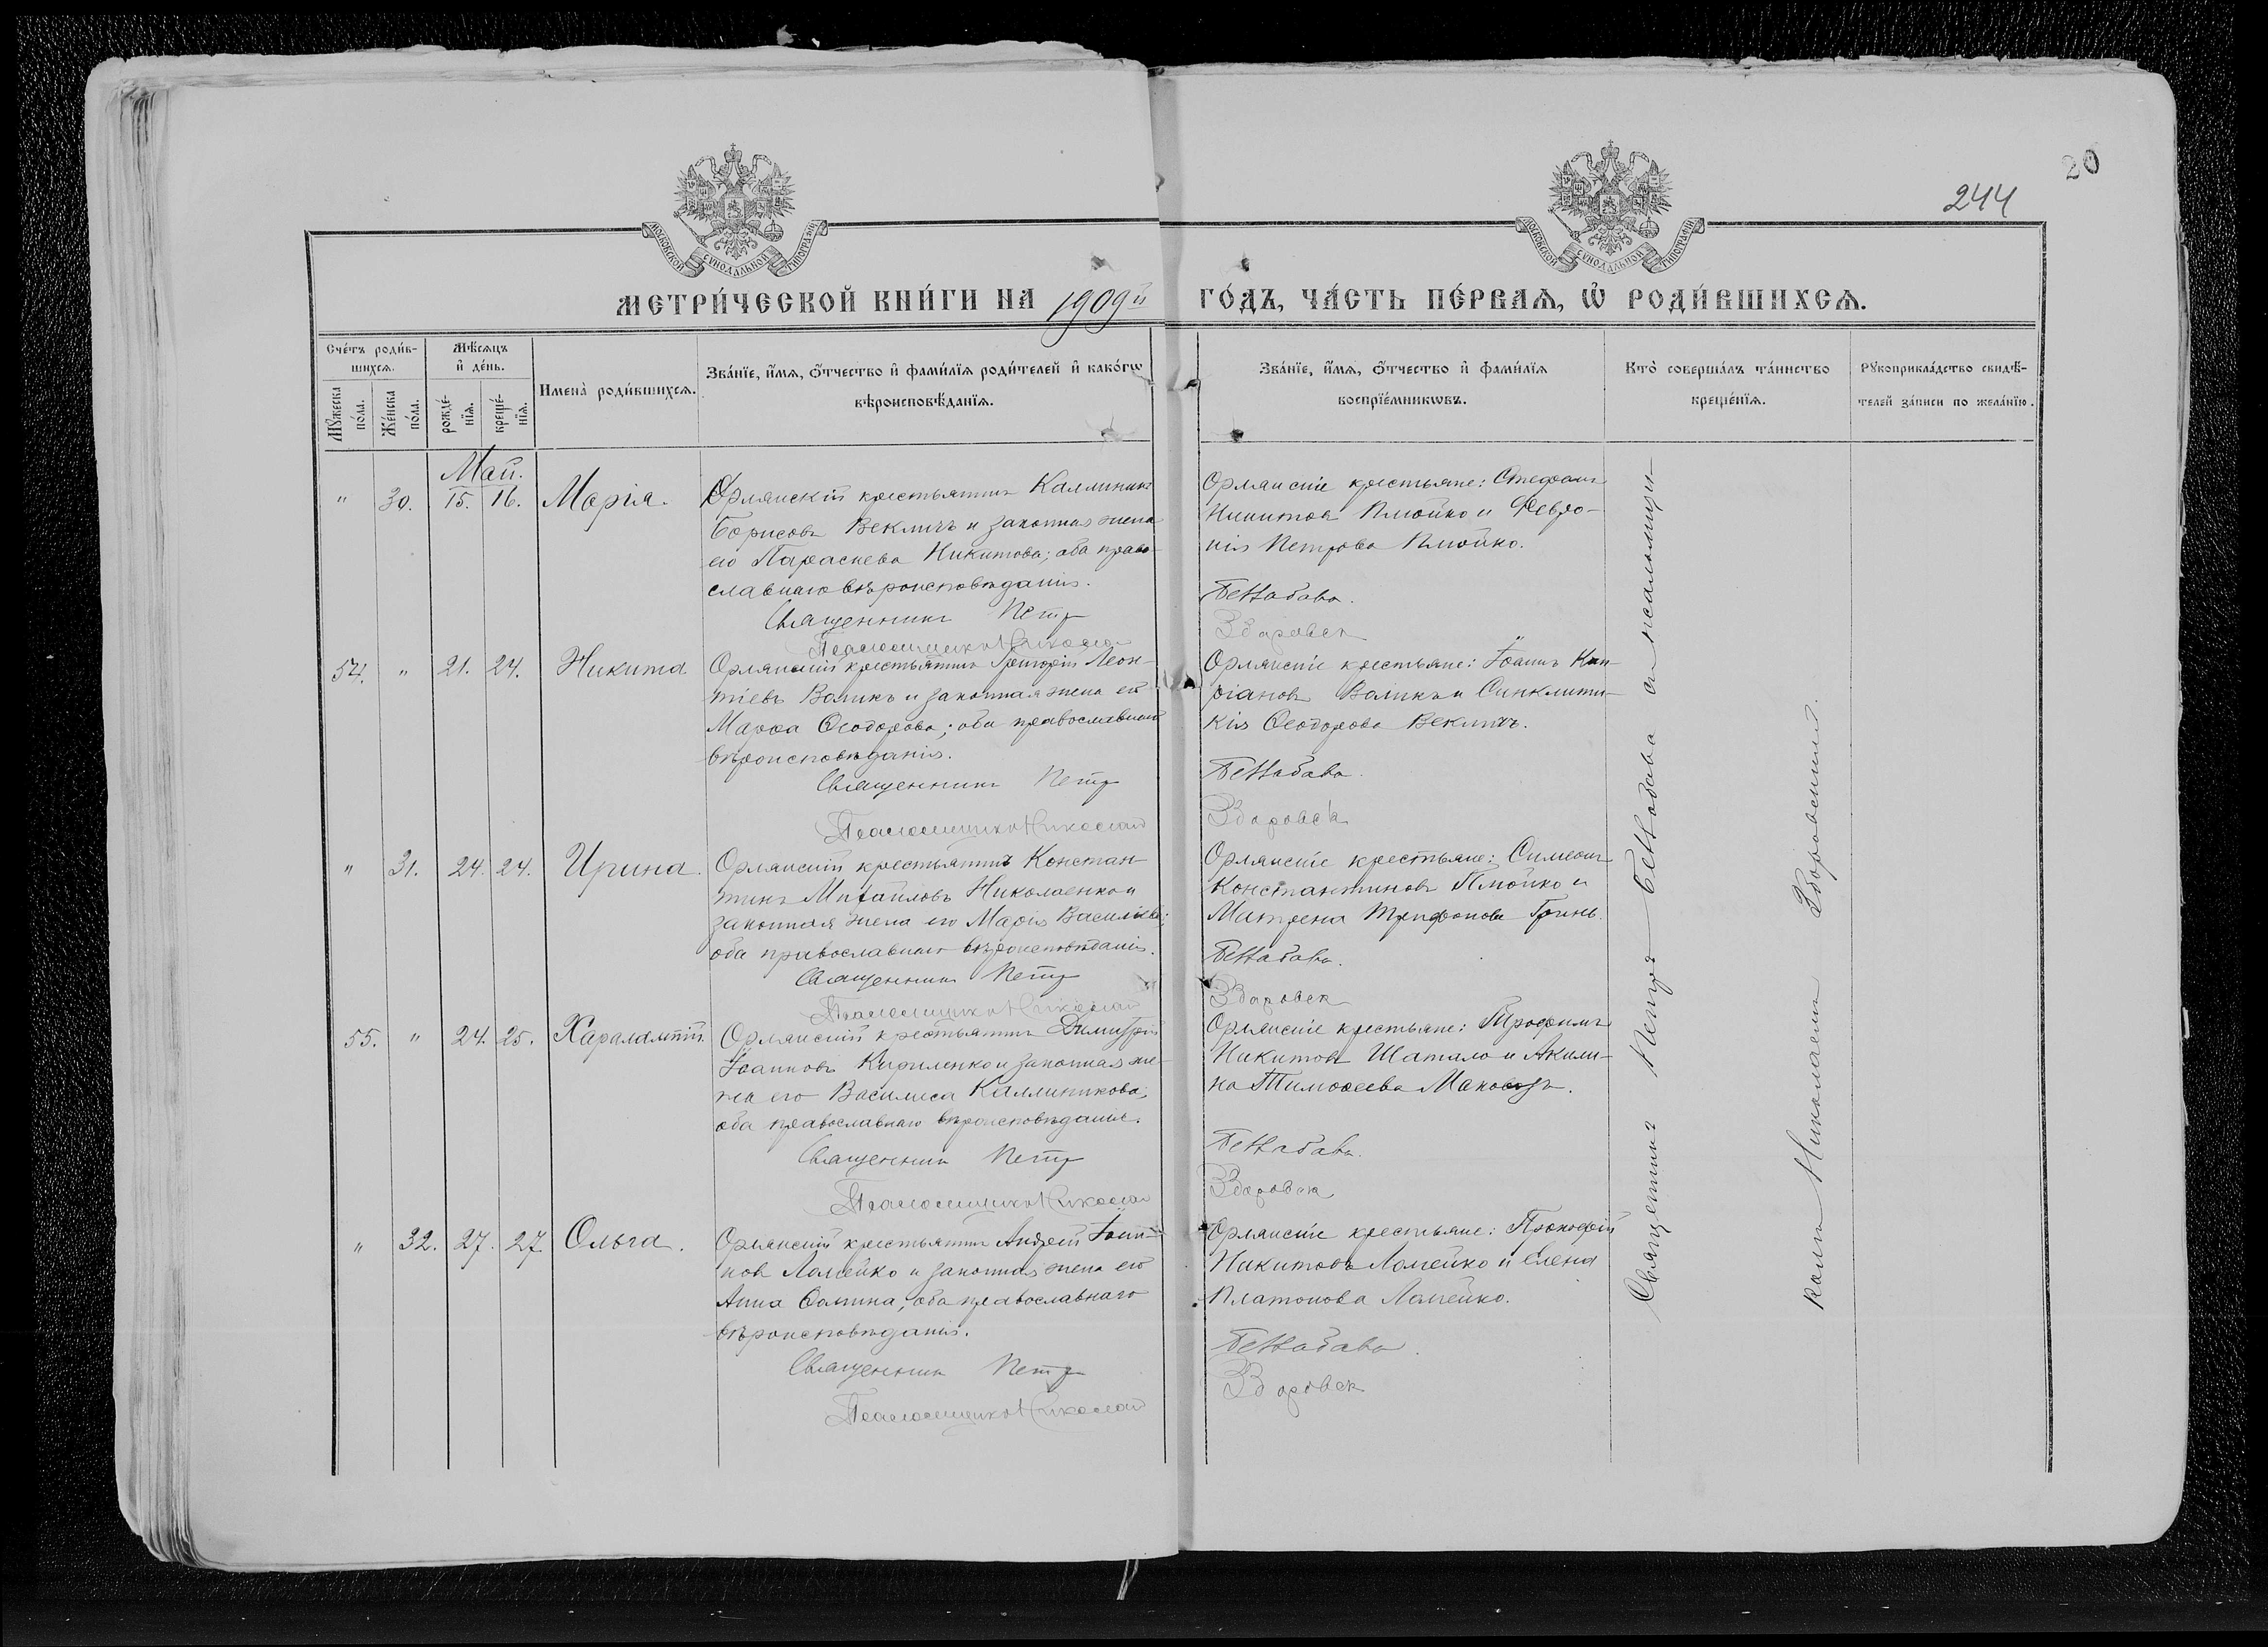 20
244
МОСКОВСКОЙ СУНОДАЛЬНОЙ ТИПОГРАФІИ
МОСКОВСКОЙ СУНОДАЛЬНОЙ ТИПОГРАФІИ
МЕТРИ́ЧЕСКОЙ КНИ́ГИ НА 1909й ГО́ДЪ, ЧА́СТЬ ПЕ́РВАѦ, Ѡ РОДИ́ВШИХСѦ.
Сче́тъ роди́в-
шихсѧ.
Мѣ́сѧцъ
и҆ де́нь.
Мꙋ́жеска по́ла.
Же́нска по́ла.
рожде́-
нїѧ.
креще́-
нїѧ.
Имена̀ роди́вшихсѧ.
Зва́нїе, и҆́мѧ, ѻ҆́тчество и҆ фами́лїѧ роди́телей и҆ како́гѡ
вѣроисповѣ́данїѧ.
Зва́нїе, и҆́мѧ, ѻ҆́тчество и҆ фами́лїѧ
воспрїе́мникѡвъ.
Кто̀ соверша́лъ та́инство
креще́нїѧ.
Рꙋкоприкла́дство свидѣ́-
телей за́писи по жела́нїю.
Май.
" 30. 15. 16. Марія.
Орлянскій крестьянинъ Каллиникъ
Борисовъ Векличъ и законная жена
его Параскева Никитова; оба право-
славнаго вѣроисповѣданія.
Священникъ Петр
Псаломщикъ Николай
Орлянскіе крестьяне: Стефанъ
Никитовъ Плюйко и Февро-
нія Петрова Плюйко.
Здоровск
54. " 21. 24. Никита
Орлянскій крестьянинъ Григорій Леон-
тіевъ Воликъ и законная жена его
Марѳа Ѳеодорова; оба православнаго
вѣроисповѣданія.
Священникъ Петр
Псаломщикъ Николай
Орлянскіе крестьяне: Іоаннъ Кип-
ріановъ Воликъ и Синклити-
кія Ѳеодорова Векличъ.
Здоровск
" 31. 24. 24. Ирина.
Орлянскій крестьянинъ Констан-
тинъ Михайловъ Николаенко и
законная жена его Марія Василіева;
оба православнаго вѣроисповѣданія.
Священникъ Петр
Псаломщикъ Николай
Орлянскіе крестьяне: Симеонъ
Константиновъ Плюйко и
Матрена Трифонова Гринь.
Здоровск
55. " 24. 25. Харалампій.
Орлянскій крестьянинъ Димитрій
Іоанновъ Кириленко и законная же-
на его Василиса Каллиникова;
оба православнаго вѣроисповѣданія.
Священникъ Петр
Псаломщикъ Николай
Орлянскіе крестьяне: Трофимъ
Никитовъ Шатило и Акили-
на Тимоѳеева Маковозъ.
Здоровск
" 32. 27. 27. Ольга.
Орлянскій крестьянинъ Андрей Іоан-
новъ Ломейко и законная жена его
Анна Ѳомина; оба православнаго
вѣроисповѣданія.
Священникъ Петр
Псаломщикъ Николай
Орлянскіе крестьяне: Прокофій
Никитовъ Ломейко и Елена
Платонова Ломейко.
Здоровск
Священникъ Петръ съ псаломщи-
комъ Николаемъ Здоровскимъ.